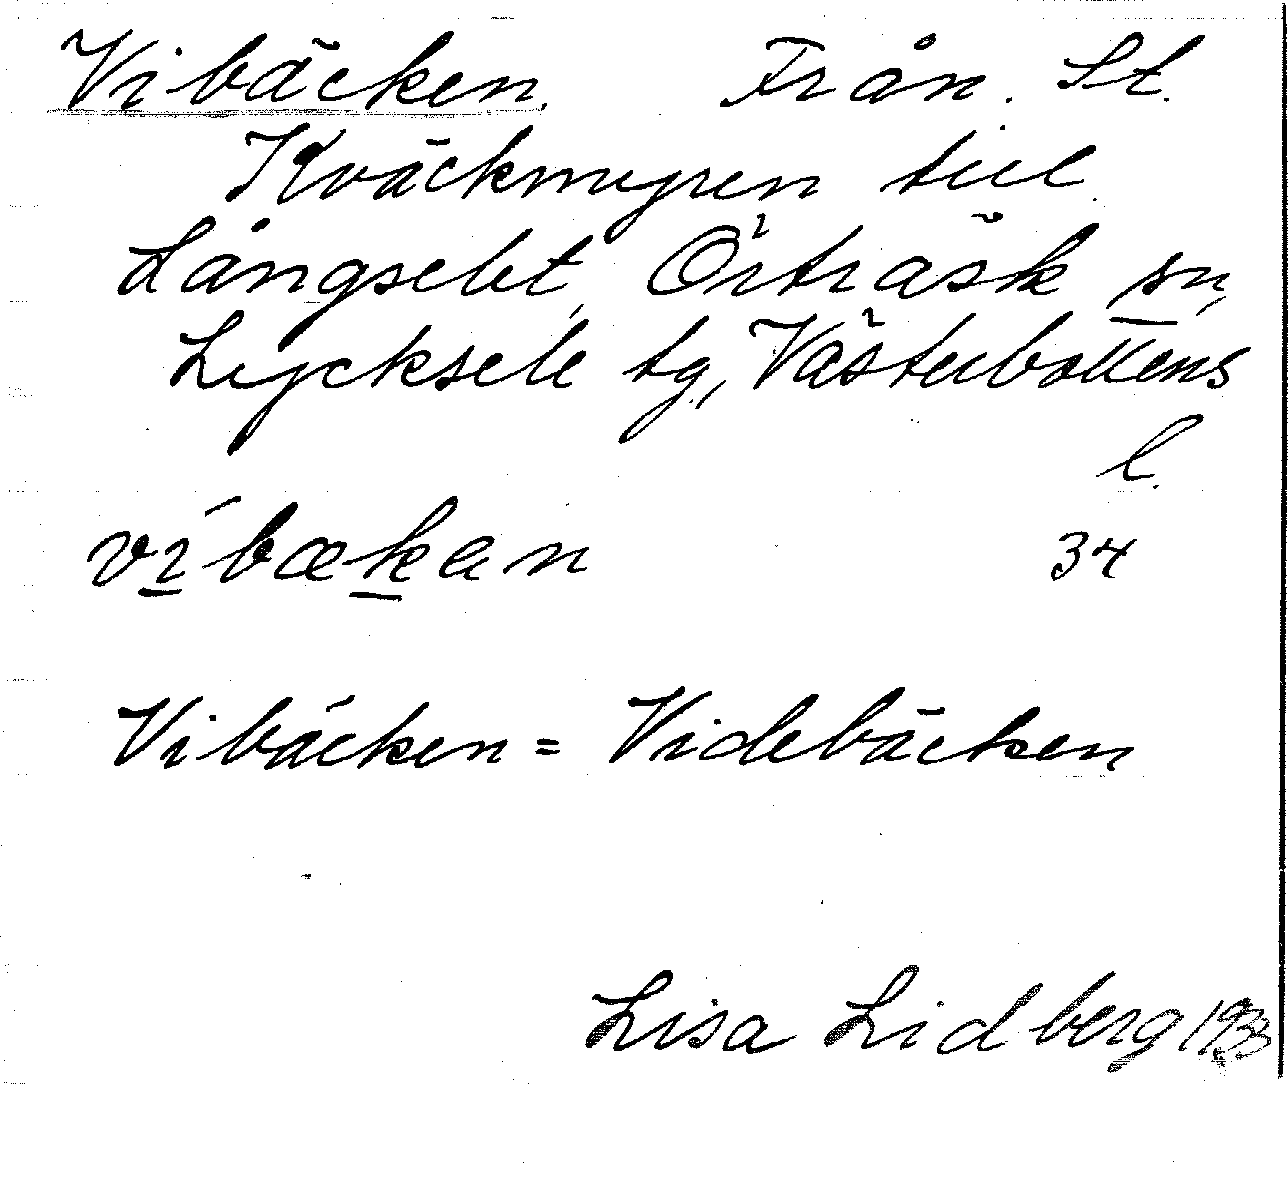 Vibäcken. Från. St.
Kväckmyren till
Långselet, Örträsk sn,
Lycksele tg, Västerbottens
l.
víbækan 34
Vibäcken = Videbäcken
Lisa Lidberg 1933